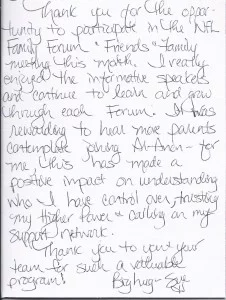 Thank you for the oppor-
tunity to participate in the NFL
Family Forum "Friends" & Family
meeting this month. I really
enjoyed the informative speakers
and continue to learn and grow
through each Forum. It was
rewarding to hear more parents
contemplate joining Al-Anon - for
me this has made a
positive impact on understanding
who I have control over, trusting
my Higher Power & calling on my
support network.
Thank you to you & your
team for such a valuable
program! Big hug -